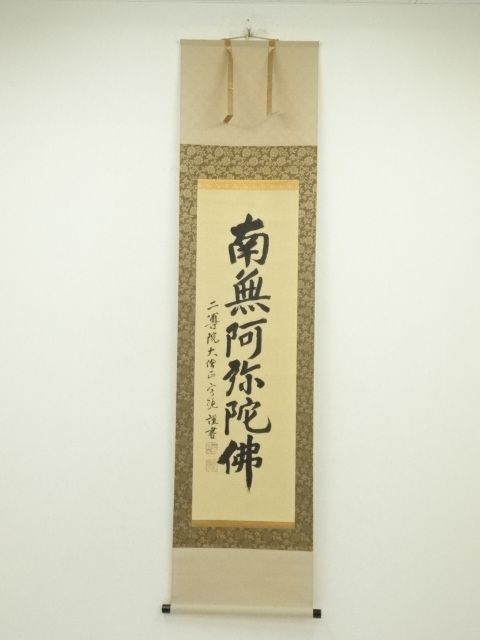 南無阿弥陀佛
二尊院大僧正
謹書